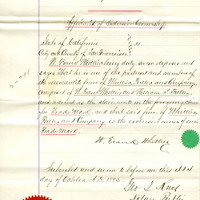 Affidavit of Extensive Ownership.
State of California
City and County of San Francisco } ss
W. Frank Whittier being duly sworn deposes and
says that he is one of the partners and member of
the mercantile firm of Whittier Fuller and Company
composed of W. Frank Whittier & William P. Fuller,
and named as the claimants in the foregoing claim
for Trade Mark, and that said firm of Whittier
Fuller and Company, is the exclusive owner of such
Trade Mark.
W. Frank Whittier
Subscribed and sworn to before me this 31st
day of October A.D. 18
Geo. T. Knox
Notary Public